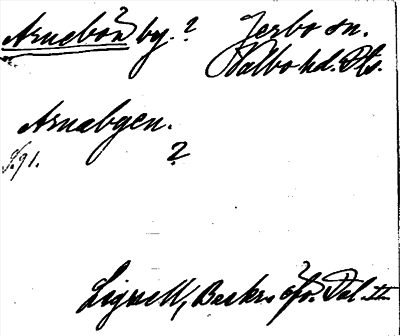 Arnebo? by.? Jerbo sn.
Valbo hd. Gls.
Arnabgen.
S. 91. ?
Lignell, Beskr. öfv. Dal. II